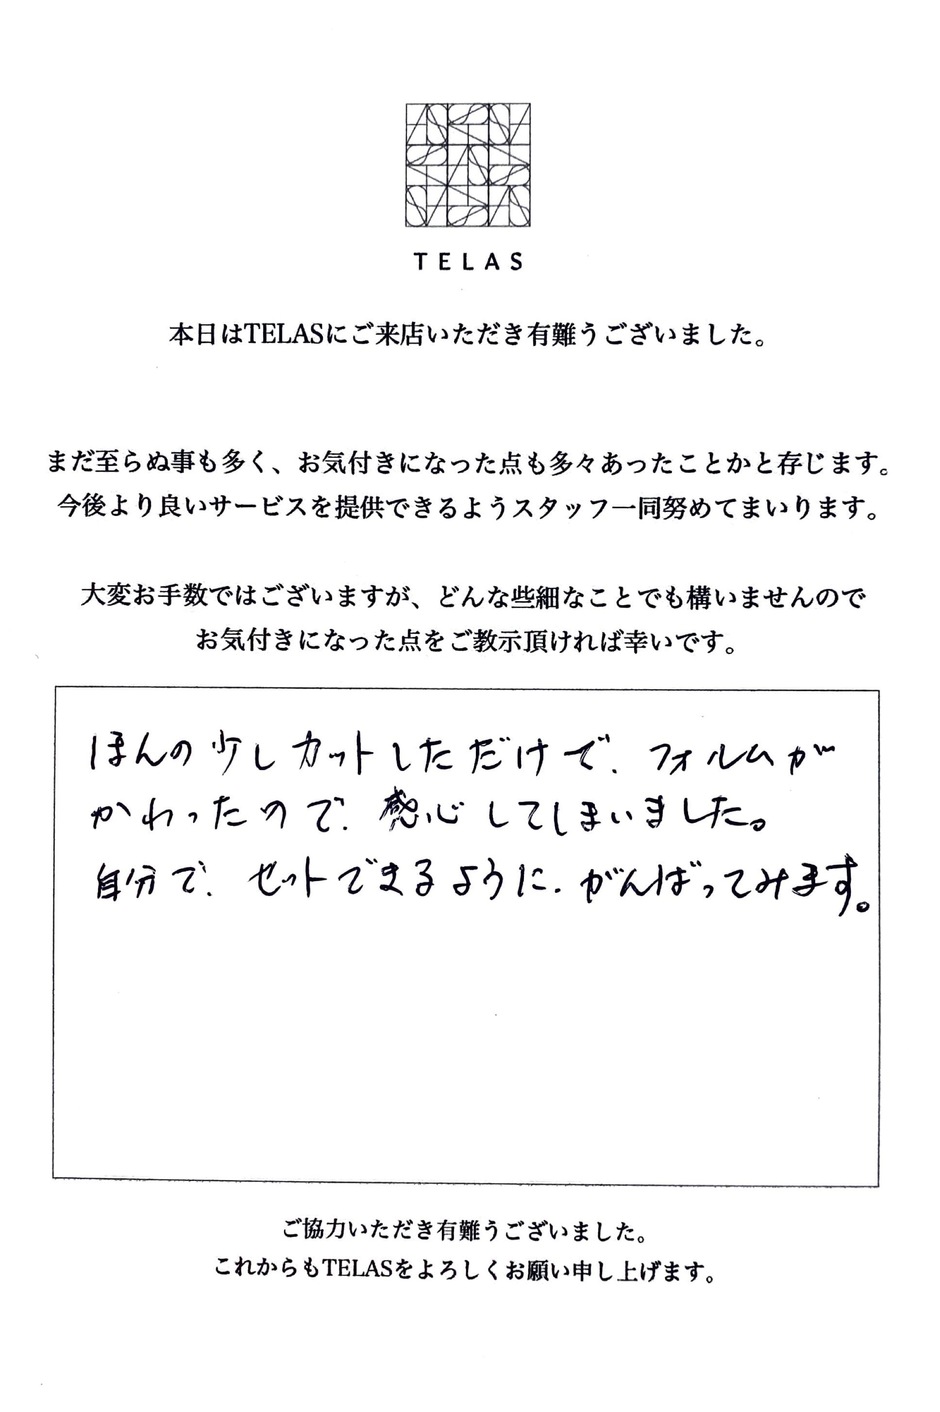 TELAS
本日はTELASにご来店いただき有難うございました。
まだ至らぬ事も多く、お気付きになった点も多々あったことかと存じます。
今後より良いサービスを提供できるようスタッフ一同努めてまいります。
大変お手数ではございますが、どんな些細なことでも構いませんので
お気付きになった点をご教示頂ければ幸いです。
ほんの少しカットしただけで、フォルムが
かわったので、感心してしまいました。
自分で、セットできるように、がんばってみます。
ご協力いただき有難うございました。
これからもTELASをよろしくお願い申し上げます。